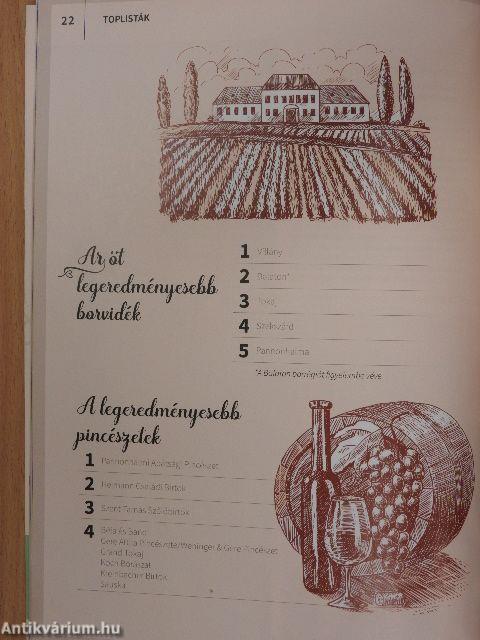 22 TOPLISTÁK
Az öt
legeredményesebb
borvidék
1 Villány
2 Balaton*
3 Tokaj
4 Szekszárd
5 Pannonhalma
*A Balaton borrégiót figyelembe véve
A legeredményesebb
pincészetek
1 Pannonhalmi Apátsági Pincészet
2 Heimann Családi Birtok
3 Szent Tamás Szőlőbirtok
4 Béla és Bandi
Gere Attila Pincészete/Weninger & Gere Pincészet
Grand Tokaj
Koch Borászat
Kreinbacher Birtok
Sauska
Antikvárium.hu